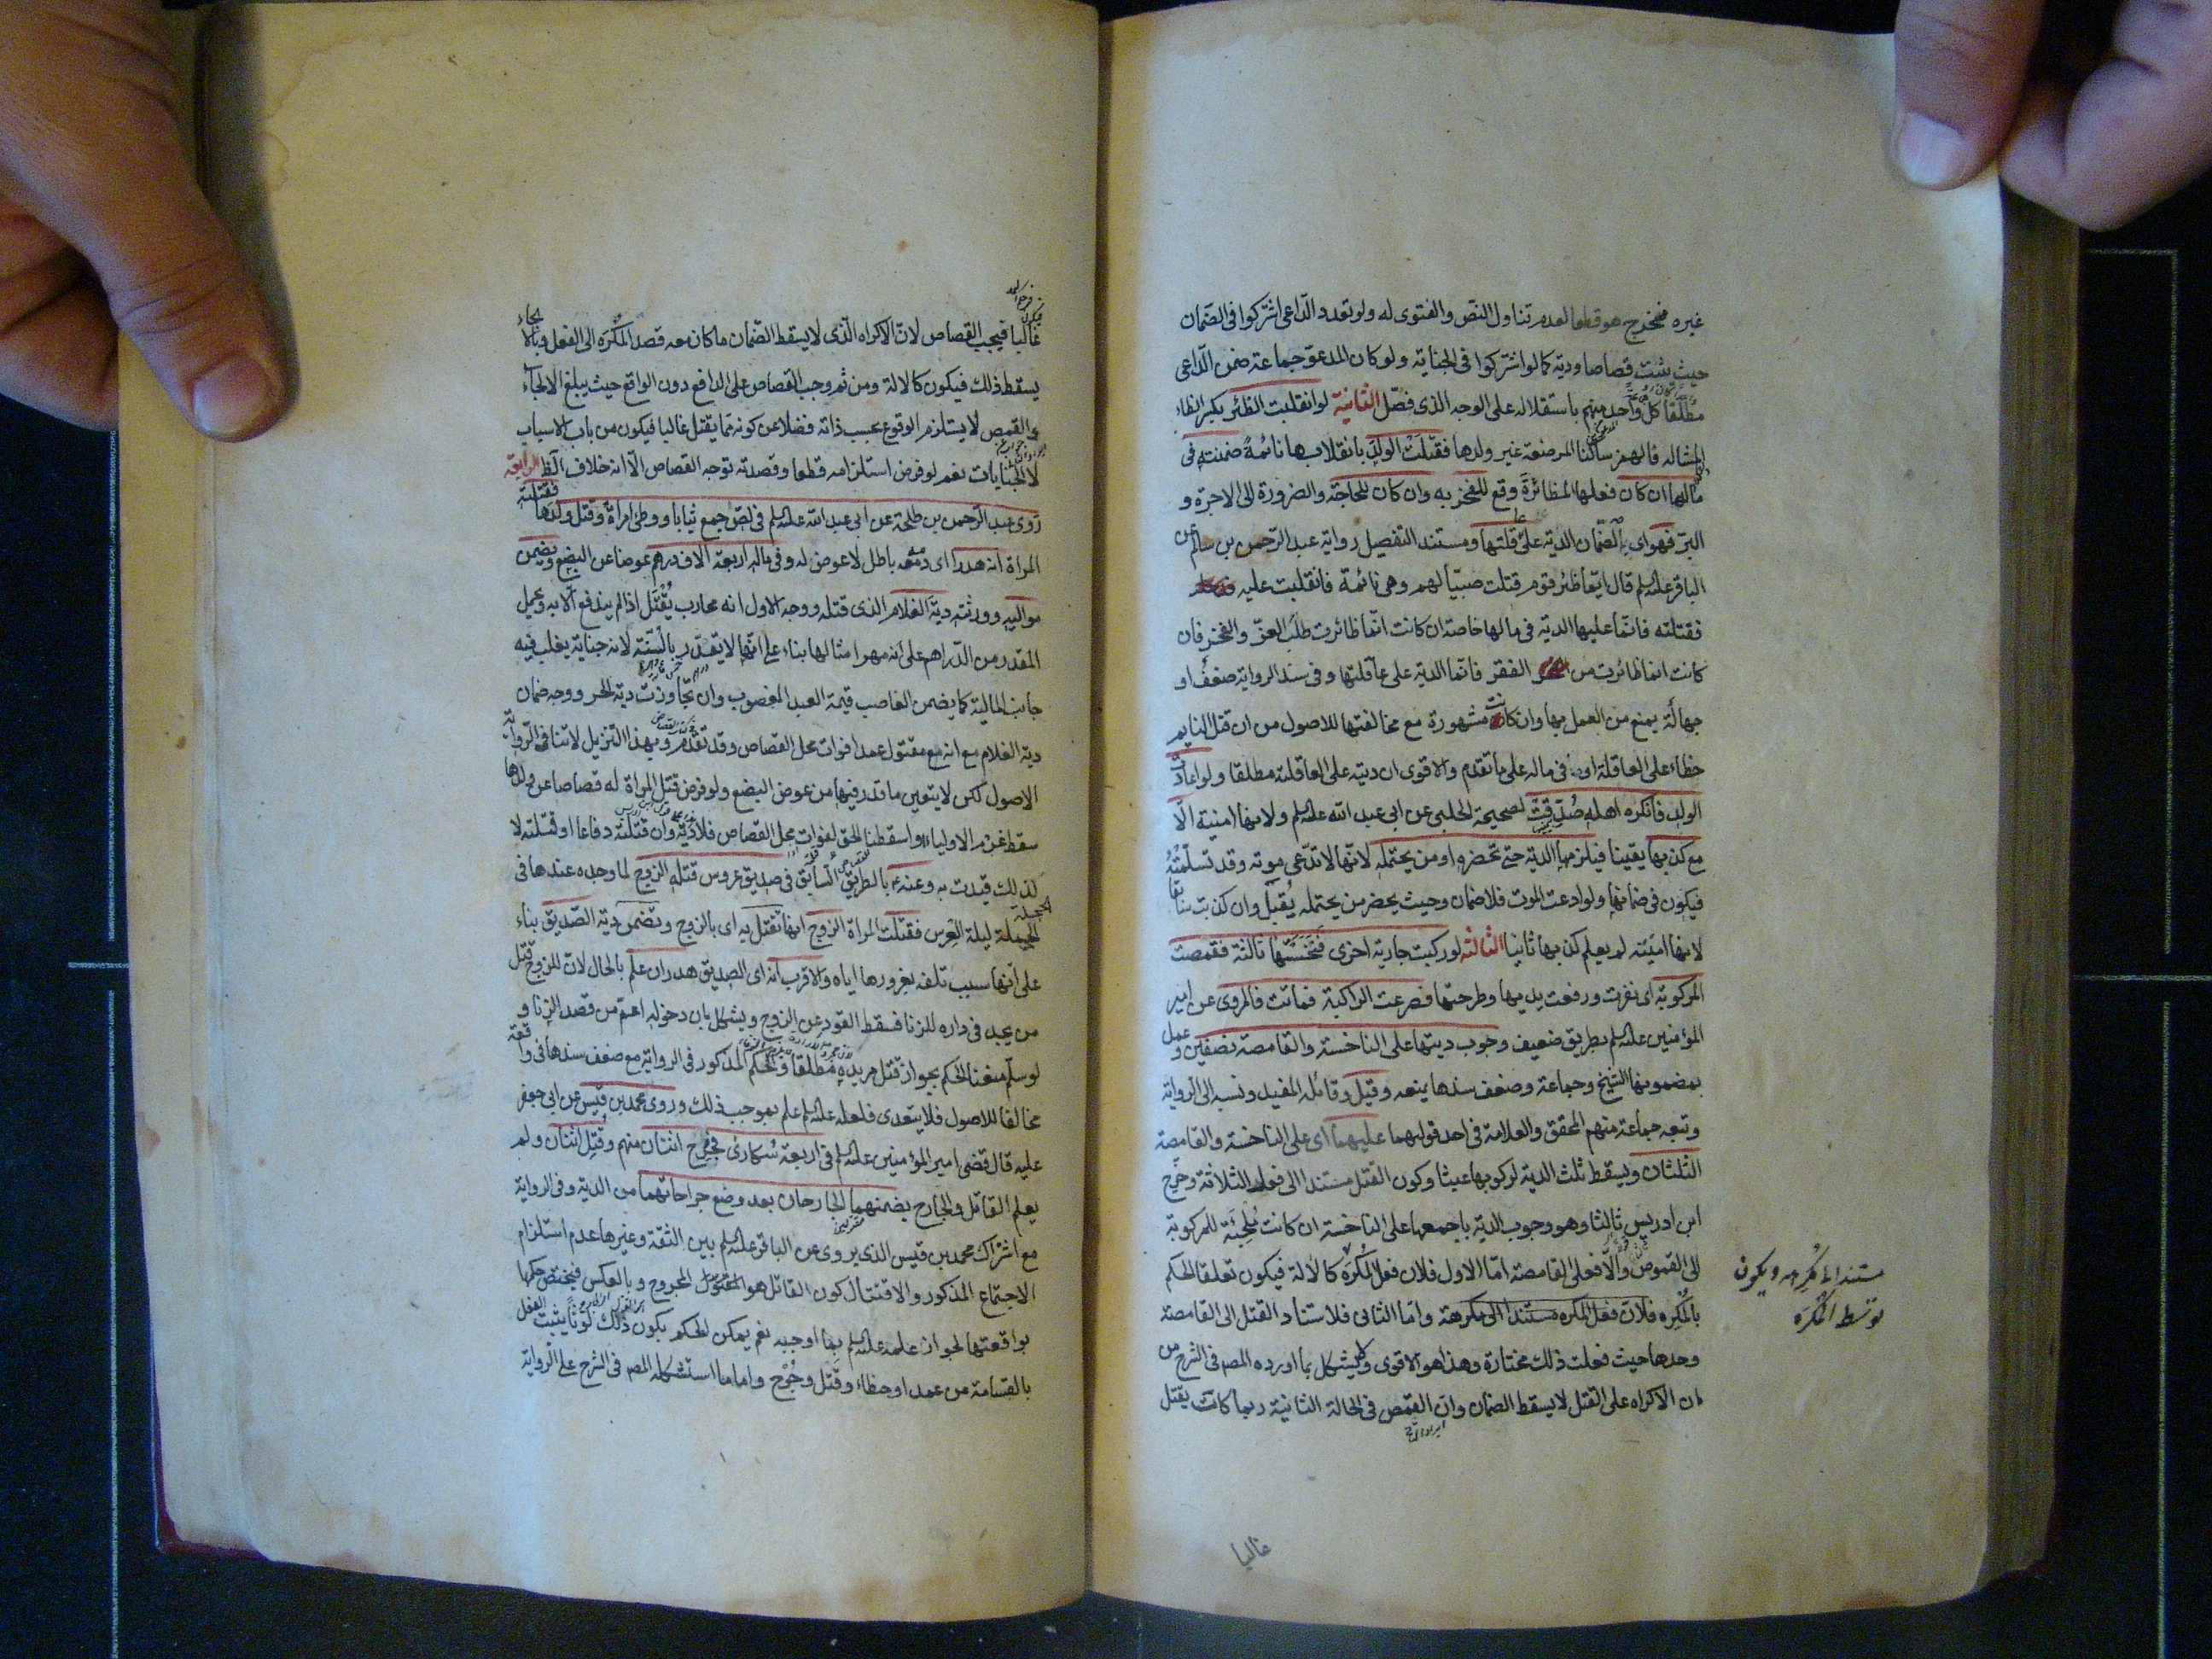 غيره مخرج هو قطعا لعدم تناول النص والفتوى له ولو تعدد الداعي اشتركوا في الضمان
حيث يثبت قصاصا ودية كما لو اشتركوا في الجناية ولو كان المدعو جماعة ضمن الداعي
مطلقا كل واحد منهم باستقلاله على الوجه الذي فصل الثانية لو انقلبت الظئر بكسر الظاء
المشالة فالهمز ساكنا المرضعة غير ولدها فقتلت الولد بانقلابها نائمة ضمنته في
مالها ان كان فعلها المظائرة وقع للفخر به وان كان للحاجة والضرورة الى الاجرة و
البر فهو اى الضمان الدية على عاقلتها ومستند التفصيل رواية عبد الرحمن بن سالم عن
الباقر عليه السلم قال ايما ظئر قوم قتلت صبيا لهم وهي نائمة فانقلبت عليه
فقتلته فانما عليها الدية في مالها خاصة ان كانت انما ظائرت طلب العز والفخر فان
كانت انما ظائرت من الفقر فانما الدية على عاقلتها وفي سند الرواية ضعف او
جهالة يمنع من العمل بها وان كانت مشهورة مع مخالفتها للاصول من ان قتل النايم
خطاء على العاقلة او في ماله على ما تقدم والاقوى ان ديته على العاقلة مطلقا ولو اعادت
الولد فانكره اهله صدقت لصحيحة الحلبي عن ابي عبد الله عليه السلم ولانها امينة الا
مع كذبها يقينا فيلزمها الدية حتى تحضره او من يحتمله لانها لا تدعي موته وقد تسلمته
فيكون في ضمانها ولو ادعت الموت فلا ضمان وحيث يحضر من يحتمله يقبل وان كذبت سابقا
لانها امينة لم يعلم كذبها ثانيا الثالثة لو ركبت جارية اخرى فنخستها ثالثة فقمصت
المركوبة اى نفرت ورفعت يديها وطرحتها فصرعت الراكبة فماتت فالمروي عن امير
المؤمنين عليه السلم بطريق ضعيف وجوب ديتها على الناخسة والقامصة نصفين وعمل
بمضمونها الشيخ وجماعة وضعف سندها يمنعه وقيل وقائله المفيد ونسبه الى الرواية
وتبعه جماعة منهم المحقق والعلامة في احد قوليهما عليهما اى على الناخسة والقامصة
الثلثان ويسقط ثلث الدية لركوبها عبثا وكون القتل مستندا الى فعل الثلاثة وخرج
ابن ادريس ثالثا وهو وجوب الدية باجمعها على الناخسة ان كانت ملجئة للمركوبة
الى القموص والا فعلى القامصة اما الاول فلان فعل المكره كالآلة فيكون تعلقا الحكم
بالمكره فلان فعل المكره مستندا الى مكرهه واما الثاني فلاستناد القتل الى القامصة
وحدها حيث فعلت ذلك مختارة وهذا هو الاقوى ولا يشكل بما اورده المص في الشرح من
ان الاكراه على القتل لا يسقط الضمان وان القمص في الحالة الثانية ربما كانت يقتل
مستندا الى مكرهه ويكون
توسط المكره
غالبا
غالبا فيجب القصاص لان الاكراه الذي لا يسقط الضمان ما كان معه قصد المكره الى الفعل وبالالجاء
يسقط ذلك فيكون كالآلة ومن ثم وجب القصاص على الدافع دون الواقع حيث يبلغ الالجاء
والقمص لا يستلزم الوقوع بحسب ذاته فضلا عن كونه مما يقتل غالبا فيكون من باب الاسباب
لا الجنايات نعم لو فرض استلزامه قطعا وقصدته توجه القصاص الا انه خلاف الظ الرابعة
روى عبد الرحمن بن طلحة عن ابي عبد الله عليه السلم في لص جمع ثيابا ووطئ امراة وقتل ولدها فقتلته
المراة انه هدر اى دمه باطل لا عوض له وفي ماله اربعة الاف درهم عوضا عن البضع ويضمن
مواليه وورثته دية الغلام الذي قتله ووجه الاول انه محارب يقتل اذا لم يندفع الا به ويحمل
المقدر من الدراهم على انه مهر امثالها بناء على انها لا يتقدر بالسنة لانه جناية يغلب فيه
جانب المالية كما يضمن الغاصب قيمة العبد المغصوب وان تجاوزت دية الحر ووجه ضمان
دية الغلام مع انه مع مقتول عمدا فوات محل القصاص وقد تقدم وبهذا التنزيل لا تنافي الرواية
الاصول لكن لا يتعين ما قدر فيها من عوض البضع ولو فرض قتل المراة له قصاصا عن ولدها
سقط غرم الاولياء واسقطنا الحق لفوات محل القصاص فلا دية وان قتلته دفاعا او قتلته لا
لذلك قيدت به وعنه بالطريق السابق في صديق عروس قتله الزوج لما وجده عندها في
الحجلة ليلة العرس فقتلت المراة الزوج انها تقتل به اى بالزوج وتضمن دية الصديق بناء
على انها سبب تلفه بغرورها اياه والاقرب انه اى الصديق هدر ان علم بالحال لان للزوج قتل
من يجد في داره للزنا فسقط القود عن الزوج ويشكل بان دخوله اعم من قصد الزنا و
لو سلم منعنا الحكم بجواز قتل مريده مطلقا والحكم المذكور في الرواية مع ضعف سندها في واقعة
مخالفا للاصول فلا يتعدى فلعله عليه السلم علم بموجب ذلك وروى محمد بن قيس عن ابي جعفر
عليه قال قضى امير المؤمنين عليه السلم في اربعة سكارى فجرح اثنان منهم وقتل اثنان ولم
يعلم القاتل والجارح يضمنهما الجارحان بعد وضع جراحاتهما من الدية وفي الرواية
مع اشتراك محمد بن قيس الذي يروى عن الباقر عليه السلم بين الثقة وغيرها عدم استلزام
الاجتماع المذكور والاقتتال كون القاتل هو المجروح وبالعكس فيختص حكمها
بواقعتها لجواز علمه عليه السلم بما اوجبه نعم يمكن الحكم بكون ذلك لوثا يثبت الفعل
بالقسامة من عمد او خطاء وقتل وجرح واما ما استشكله المص في الشرح على الرواية